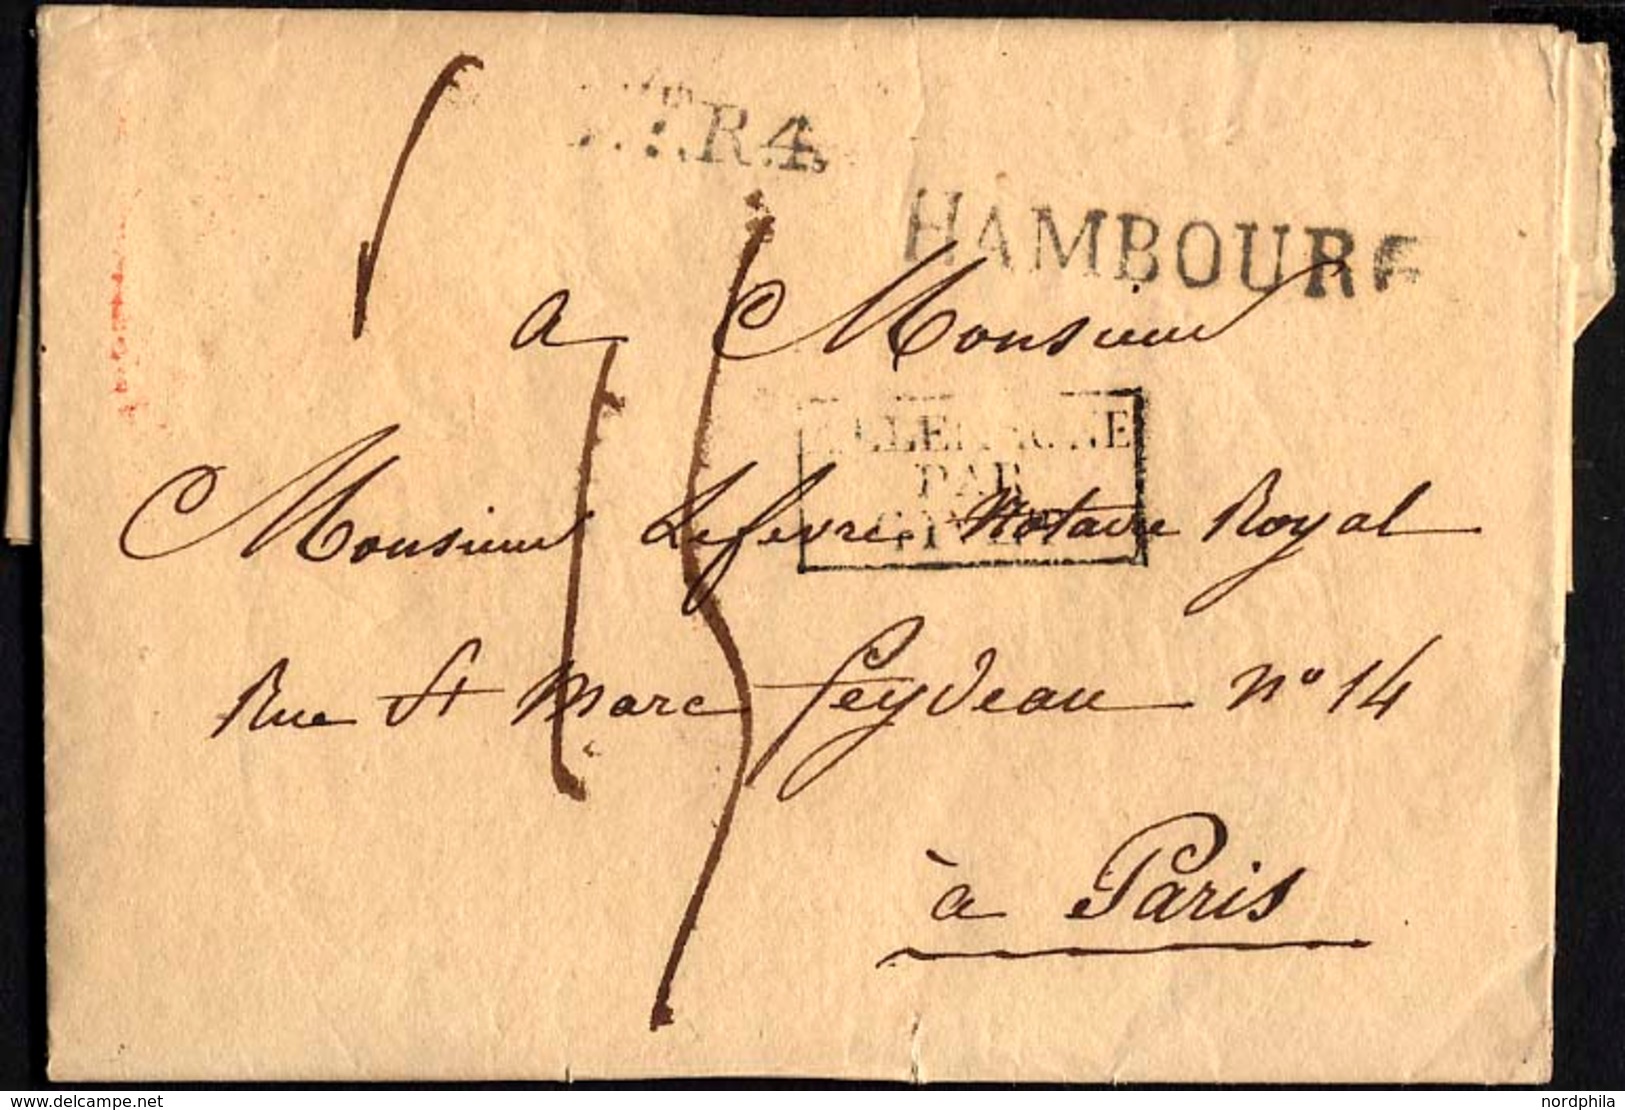 R.4.
HAMBOURG
a Monsieur
ALLEMAGNE
PAR
Monsieur Lefevre Notaire Royal
Rue St Marc feydeau no 14
à Paris
www.delcampe.net
nordphila